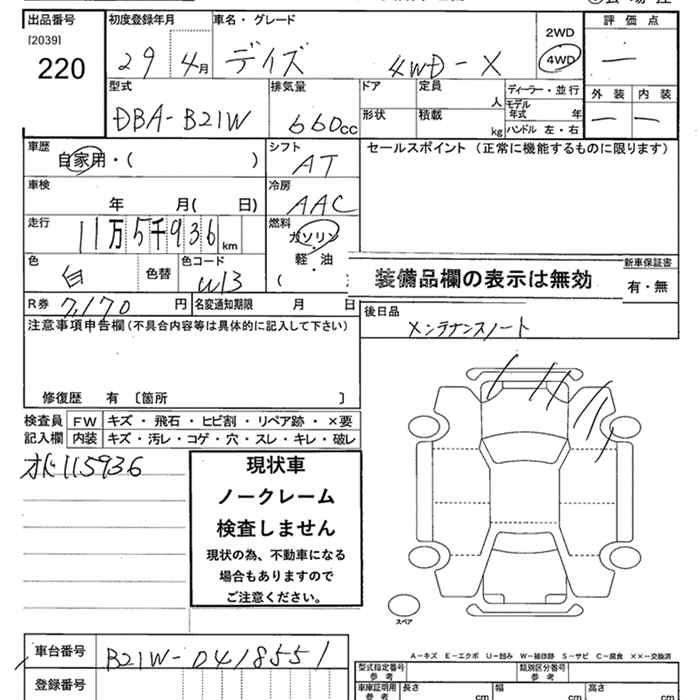 出品番号
[2039]
220
初度登録年月
29 4月
車名・グレード
デイズ 4WD-X
2WD
4WD
評価点
一
型式
DBA-B21W
排気量
660cc
ドア
定員
人
形状
積載
kg
ディーラー・並行
モデル年式 年
ハンドル 左・右
外装 内装
一 一
車歴
自家用・( )
シフト
AT
セールスポイント(正常に機能するものに限ります)
車検
年 月( 日)
冷房
AAC
走行
11万5千936km
燃料
ガソリン
・
軽・油
( 
色
白
色替
色コード
W13
装備品欄の表示は無効
新車保証書
有・無
R券
7,170円
名変通知期限 月 日
後日品
メンテナンスノート
注意事項申告欄(不具合内容等は具体的に記入して下さい)
修復歴 有 〔箇所 〕
検査員 FW キズ・飛石・ヒビ割・リペア跡・×要
記入欄 内装 キズ・汚レ・コゲ・穴・スレ・キレ・破レ
オド115936
現状車
ノークレーム
検査しません
現状の為、不動車になる
場合もありますので
ご注意ください。
スペア
A-キズ E-エクボ U-凹み W-補修跡 S-サビ C-腐食 ××-交換済
車台番号
B21W-0418551
登録番号
型式指定番号
参考
類別区分番号
参考
車庫証明用
参考
長さ cm
幅 cm
高さ cm